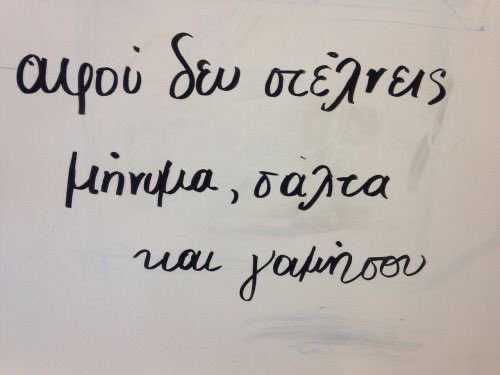 αφού δεν στέλνεις
μήνυμα, σάλτα
και γαμήσου